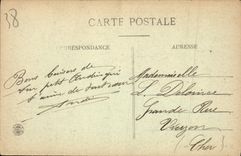 38
CARTE POSTALE
CORRESPONDANCE
ADRESSE
Bons baisers de
ton petit André qui
t'aime de tout cœur
André
Mademoiselle
L. Deloince
Grande Rue
Vierzon
(Cher)